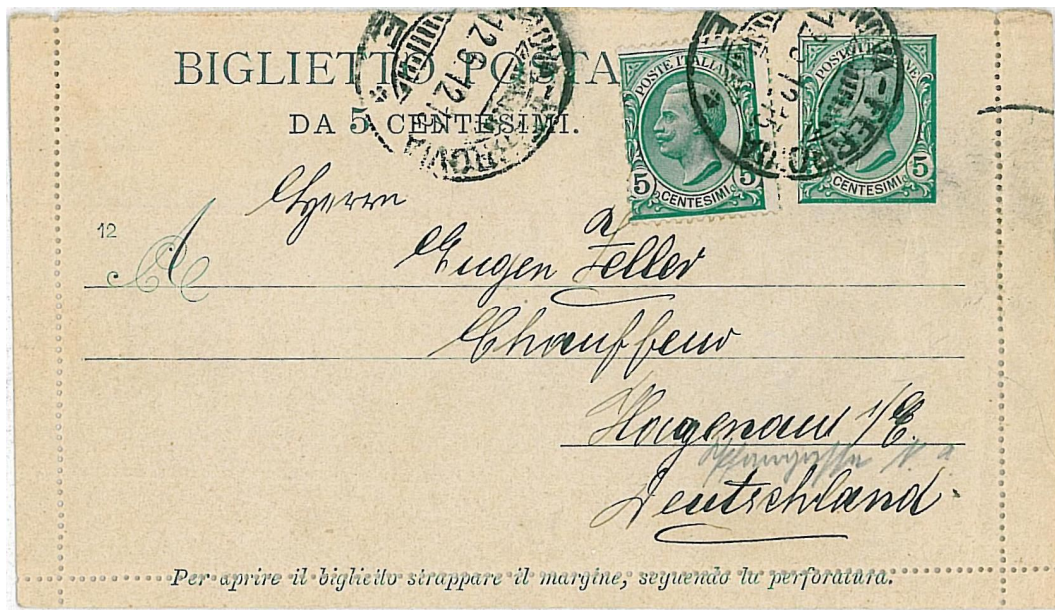 BIGLIETTO POSTA
DA 5 CENTESIMI.
POSTE ITALIANE
5 CENTESIMI 5
POSTE ITALIANE
CENTESIMI 5
12 6 12
FERROVIA
12
A
Herrn
Eugen Zeller
Chauffeur
Hagenau i/E.
Deutschland.
Per aprire il biglietto strappare il margine, seguendo la perforatura.